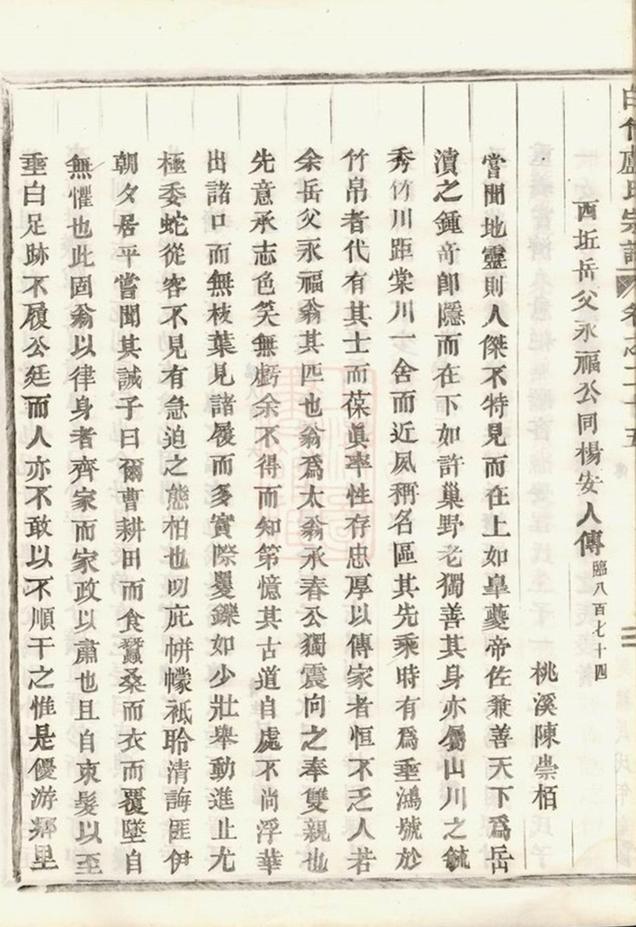 白竹盧氏宗譜 卷之二十五
西坵岳父永福公同楊安人傳臨八百七十四
桃溪陳崇栢
嘗聞地靈則人傑不特見而在上如皐夔帝佐兼善天下爲岳
瀆之鍾奇卽隱而在下如許巢野老獨善其身亦屬山川之毓
秀竹川距棠川一舍而近夙稱名區其先乘時有爲垂鴻號於
竹帛者代有其士而葆眞率性存忠厚以傳家者恒不乏人若
余岳父永福翁其匹也翁爲太翁承春公獨震向之奉雙親也
先意承志色笑無虧余不得而知第憶其古道自處不尚浮華
出諸口而無枝葉見諸履而多實際矍鑠如少壯舉動進止尤
極委蛇從容不見有急迫之態柏也叨庇帡幪祗聆清誨匪伊
朝夕居平嘗聞其誡子曰爾曹耕田而食蠶桑而衣而覆墜自
無懼也此固翁以律身者齊家而家政以肅也且自束髮以至
垂白足跡不履公廷而人亦不敢以不順干之惟是優游鄰里